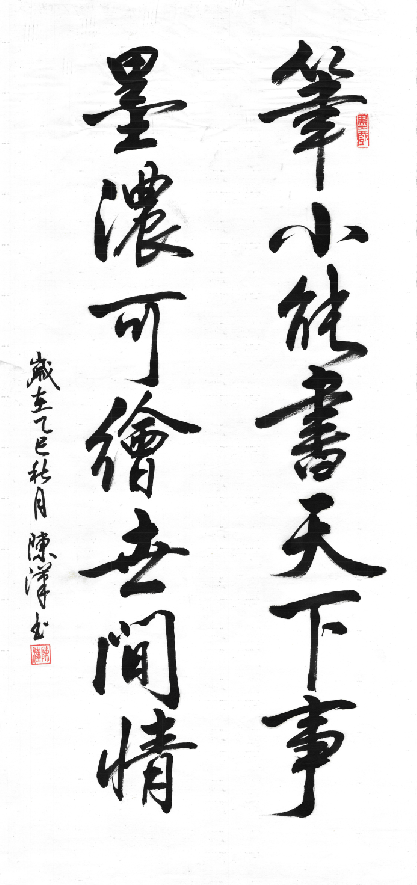 筆小能書天下事
墨濃可繪世間情
歲在乙巳秋月陳漢書